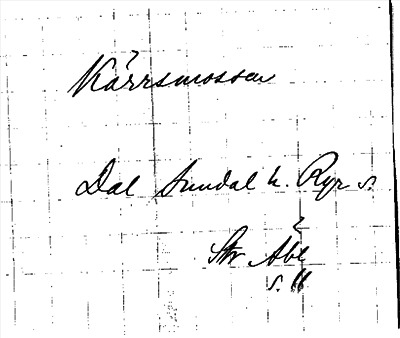 Kärrsmossen
Dal Sundal h. Ryr s.
Str Åbl
s. 11